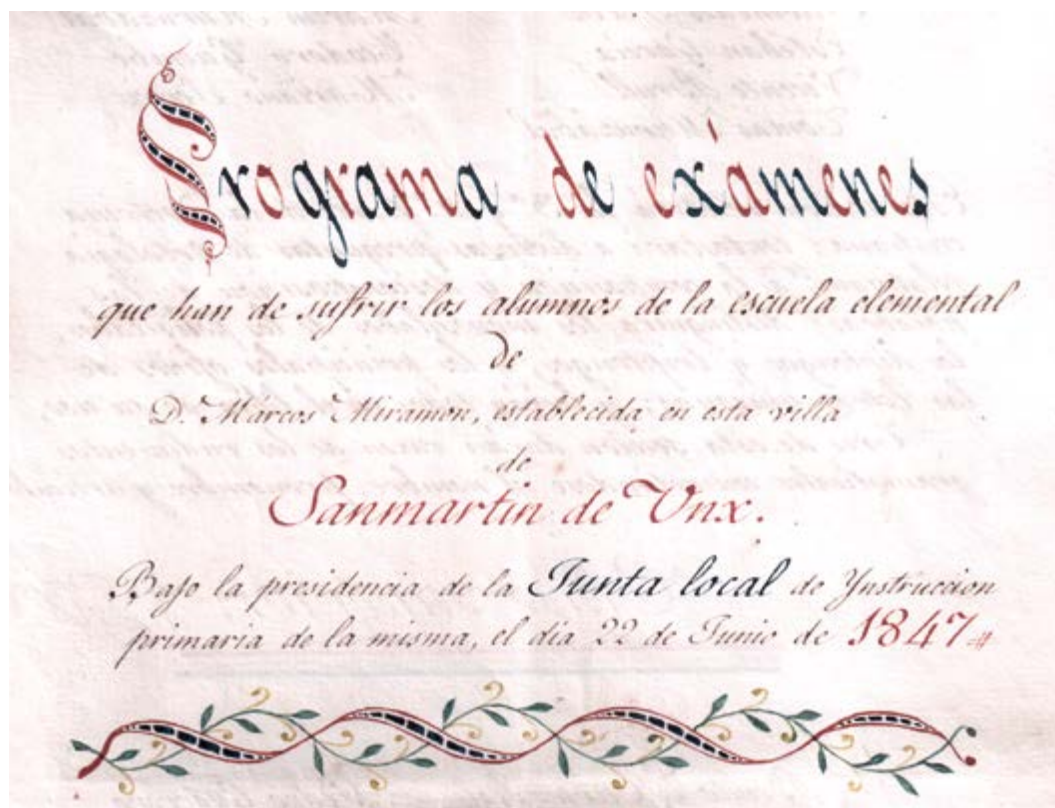 Programa de exámenes
que han de sufrir los alumnos de la escuela elemental
de
Dⁿ. Márcos Miramon, establecida en esta villa
de
Sanmartin de Unx.
Bajo la presidencia de la Junta local de Ynstruccion
primaria de la misma, el dia 22 de Junio de 1847